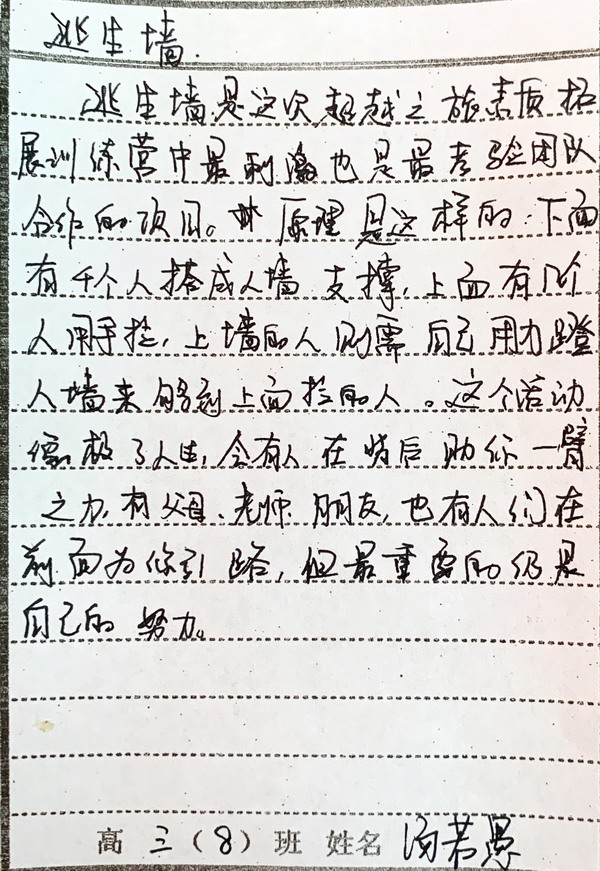 逃生墙
逃生墙是这次超越之旅素质拓
展训练营中最刺激也是最考验团队
合作的项目。原理是这样的：下面
有千个人搭成人墙支撑，上面有几个
人用手拉，上墙的人则需自己用力蹬
人墙来够到上面拉的人。这个活动
像极了人生，会有人在背后助你一臂
之力，有父母、老师、朋友，也有人们在
前面为你引路，但最重要的仍是
自己的努力。
高三（8）班 姓名 汤若愚